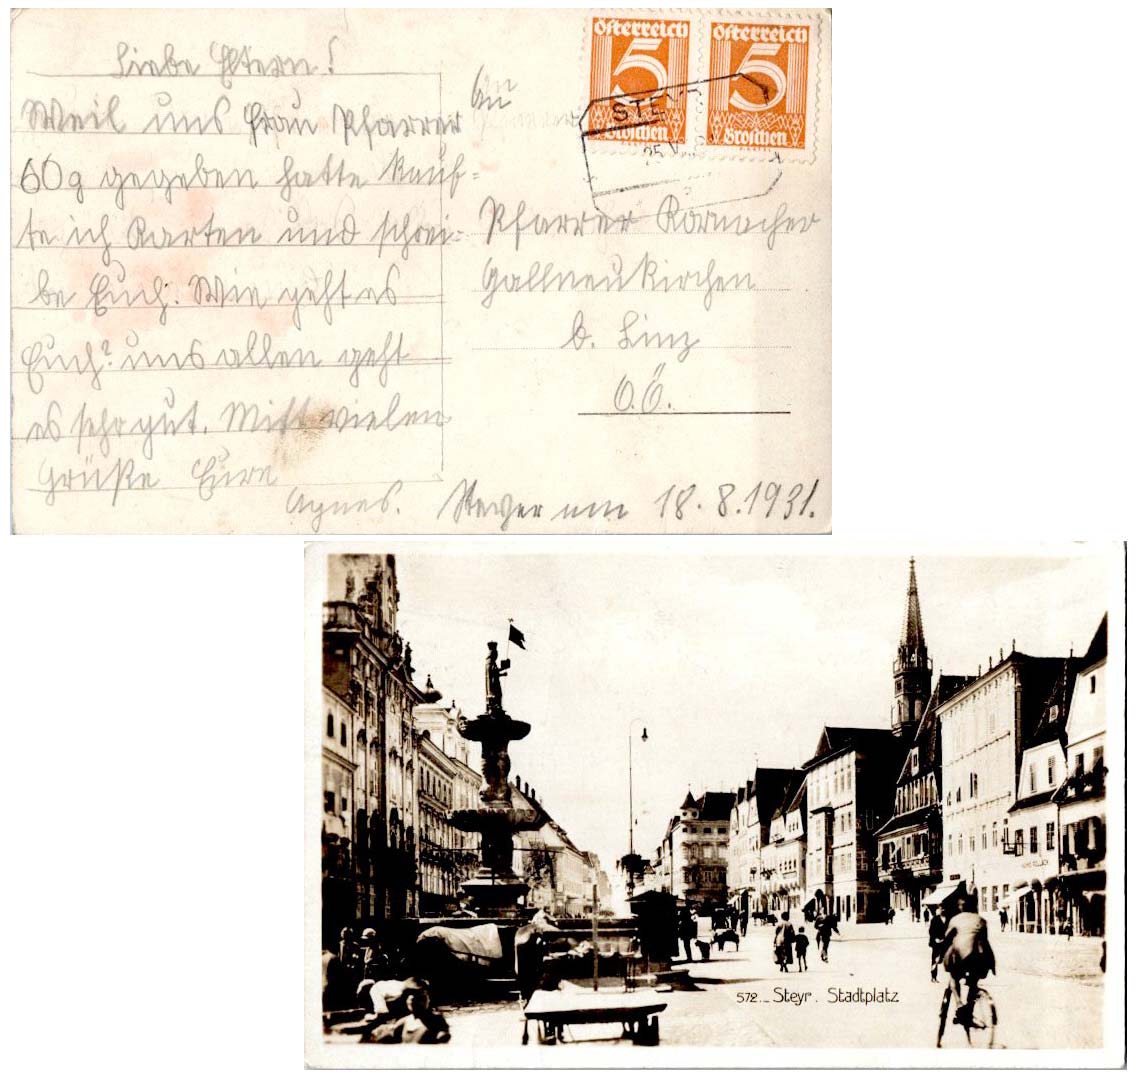 Liebe Eltern!
Weil uns Frau Pfarrer
60g gegeben hatte kauf=
te ich Karten und schrei=
be Euch. Wie geht es
Euch? uns allen geht
es sehr gut. Mitt vielen
Grüße Eure
Agnes.
Steyer am 18. 8. 1931.
Österreich
5
Groschen
Österreich
5
Groschen
STEY
25 V
An
Pfarrer
Gallneukirchen
b. Linz
O.Ö.
572._ Steyr. Stadtplatz